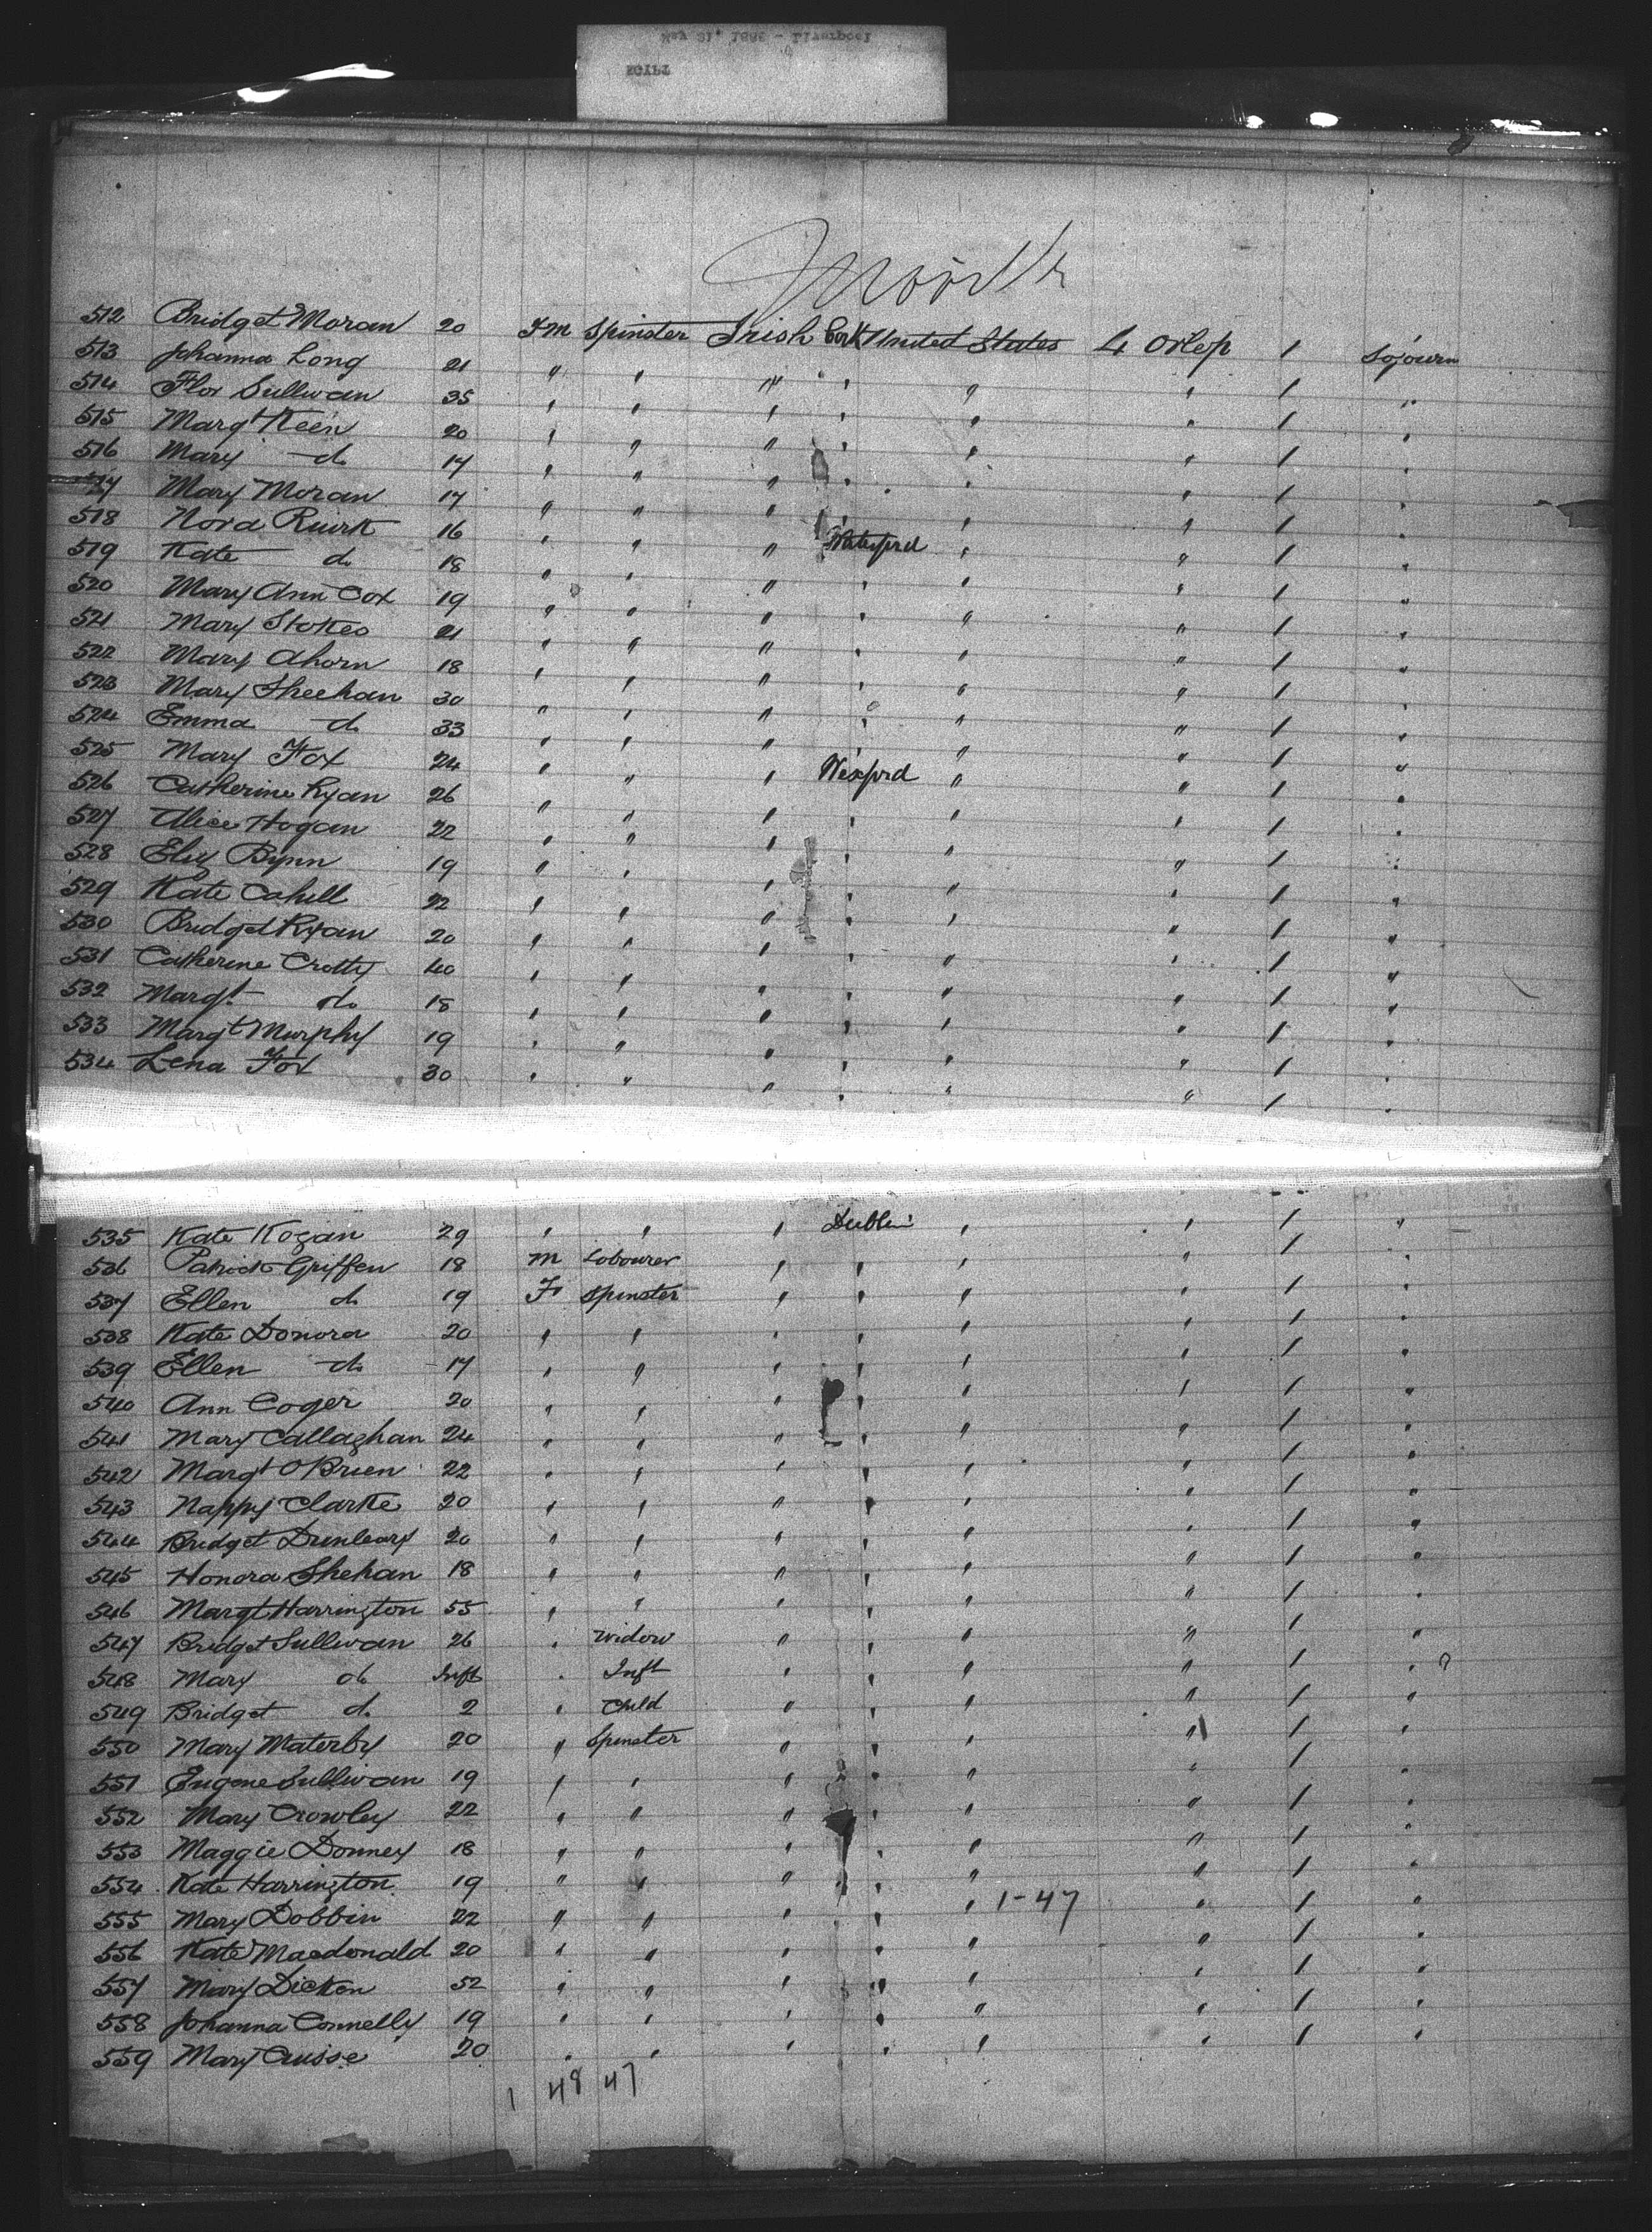 May 31st 1886 - Liverpool
EGYPT
512 Bridget Moran 20 F m Spinster Irish Cork United States 4 Orlep 1 Sojourn
513 Johanna Long 21 " " " " " " 1 "
514 Flor Sullivan 35 " " " " " " 1 "
515 Margt Keen 20 " " " " " " 1 "
516 Mary do 17 " " " " " " 1 "
517 Mary Moran 17 " " " " " " 1 "
518 Nora Ruirk 16 " " " Waterford " " 1 "
519 Kate do 18 " " " " " " 1 "
520 Mary Ann Cox 19 " " " " " " 1 "
521 Mary Stokes 21 " " " " " " 1 "
522 Mary Ahorn 18 " " " " " " 1 "
523 Mary Sheehan 30 " " " " " " 1 "
524 Emma do 33 " " " " " " 1 "
525 Mary Fox 24 " " " Wexford " " 1 "
526 Catherine Ryan 26 " " " " " " 1 "
527 Alice Hogan 22 " " " " " " 1 "
528 Eliz Bynn 19 " " " " " " 1 "
529 Kate Cahill 22 " " " " " " 1 "
530 Bridget Ryan 20 " " " " " " 1 "
531 Catherine Crotty 40 " " " " " " 1 "
532 Margt do 18 " " " " " " 1 "
533 Margt Murphy 19 " " " " " " 1 "
534 Lena Fox 30 " " " " " " 1 "
535 Kate Kogan 29 " " " Dublin " " 1 "
536 Patrick Griffen 18 m Labourer " " " " 1 "
537 Ellen do 19 F Spinster " " " " 1 "
538 Kate Donora 20 " " " " " " 1 "
539 Ellen do 17 " " " " " " 1 "
540 Ann Coger 20 " " " " " " 1 "
541 Mary Callaghan 24 " " " " " " 1 "
542 Margt O'Brien 22 " " " " " " 1 "
543 Nappy Clarke 20 " " " " " " 1 "
544 Bridget Dunleary 20 " " " " " " 1 "
545 Honora Shehan 18 " " " " " " 1 "
546 Margt Harrington 55 " " " " " " 1 "
547 Bridget Sullivan 26 " Widow " " " " 1 "
548 Mary do Inft " Inft " " " " 1 "
549 Bridget do 2 " Child " " " " 1 "
550 Mary Materby 20 " Spinster " " " " 1 "
551 Eugene Sullivan 19 " " " " " " 1 "
552 Mary Crowley 22 " " " " " " 1 "
553 Maggie Donney 18 " " " " " " 1 "
554 Kate Harrington 19 " " " " " " 1 "
555 Mary Dobbin 22 " " " " " 1-47 " 1 "
556 Kate Macdonald 20 " " " " " " 1 "
557 Mary Dicken 52 " " " " " " 1 "
558 Johanna Connelly 19 " " " " " " 1 "
559 Mary Cusse 20 " " " " " " 1 "
1 48 47